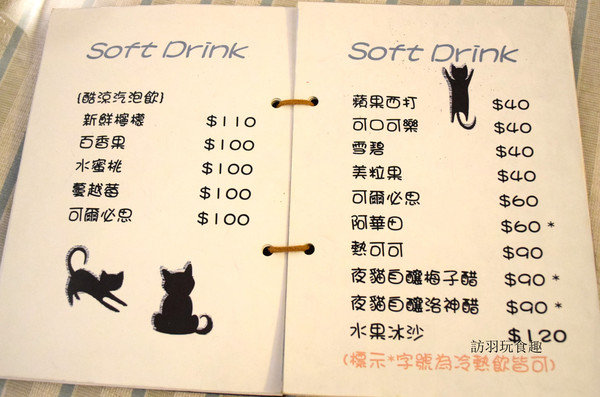 Soft Drink
{酷涼汽泡飲}
新鮮檸檬 $110
百香果 $100
水蜜桃 $100
蔓越莓 $100
可爾必思 $100
Soft Drink
蘋果西打 $40
可口可樂 $40
雪碧 $40
美粒果 $40
可爾必思 $60
阿華田 $60 *
熱可可 $90
夜貓自釀梅子醋 $90 *
夜貓自釀洛神醋 $90 *
水果冰沙 $120
訪羽玩食趣
(標示*字號為冷熱飲皆可)